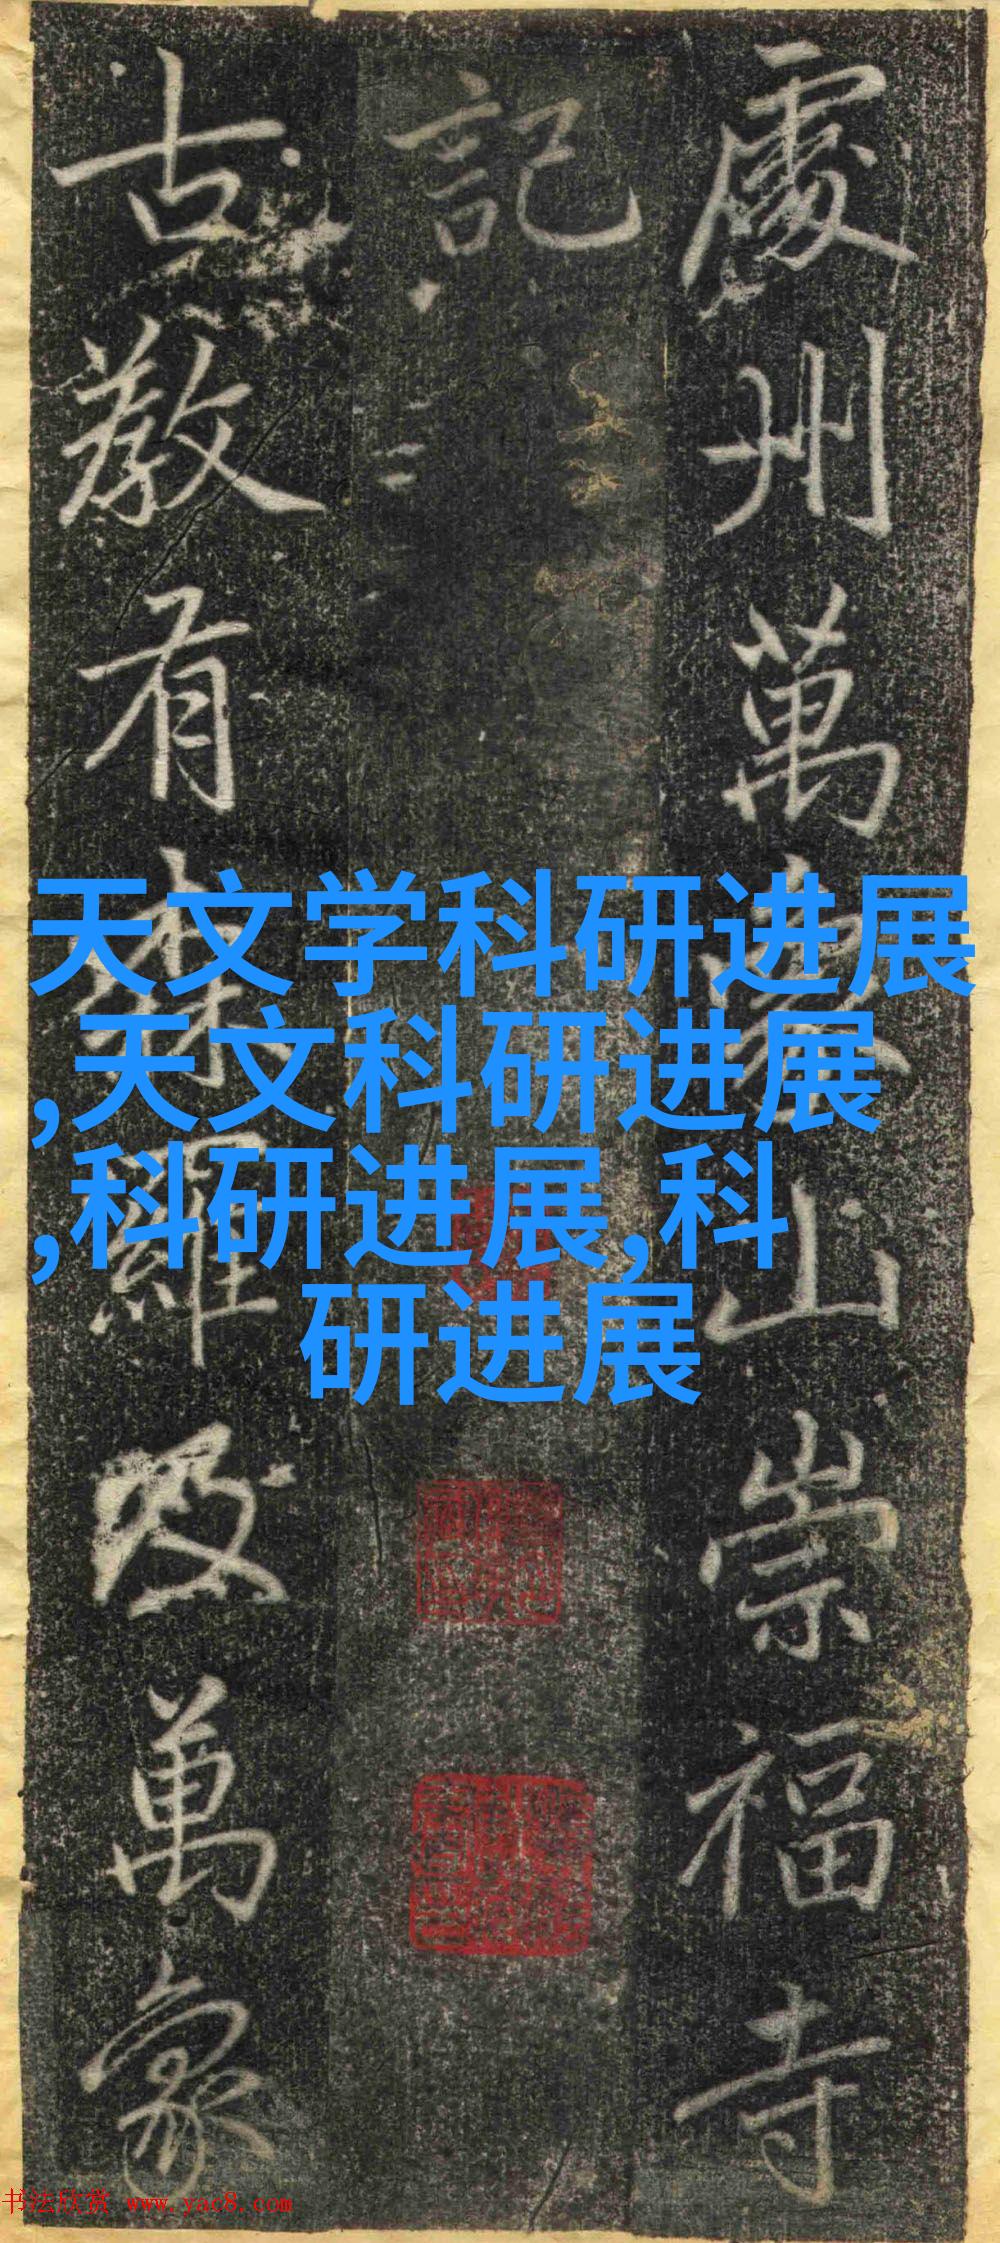 處州萬象山崇福寺
記
古教有森羅及萬象
天文学科研进展
,天文科研进展
,科研进展,科
研进展
书法欣赏 www.yac8.com